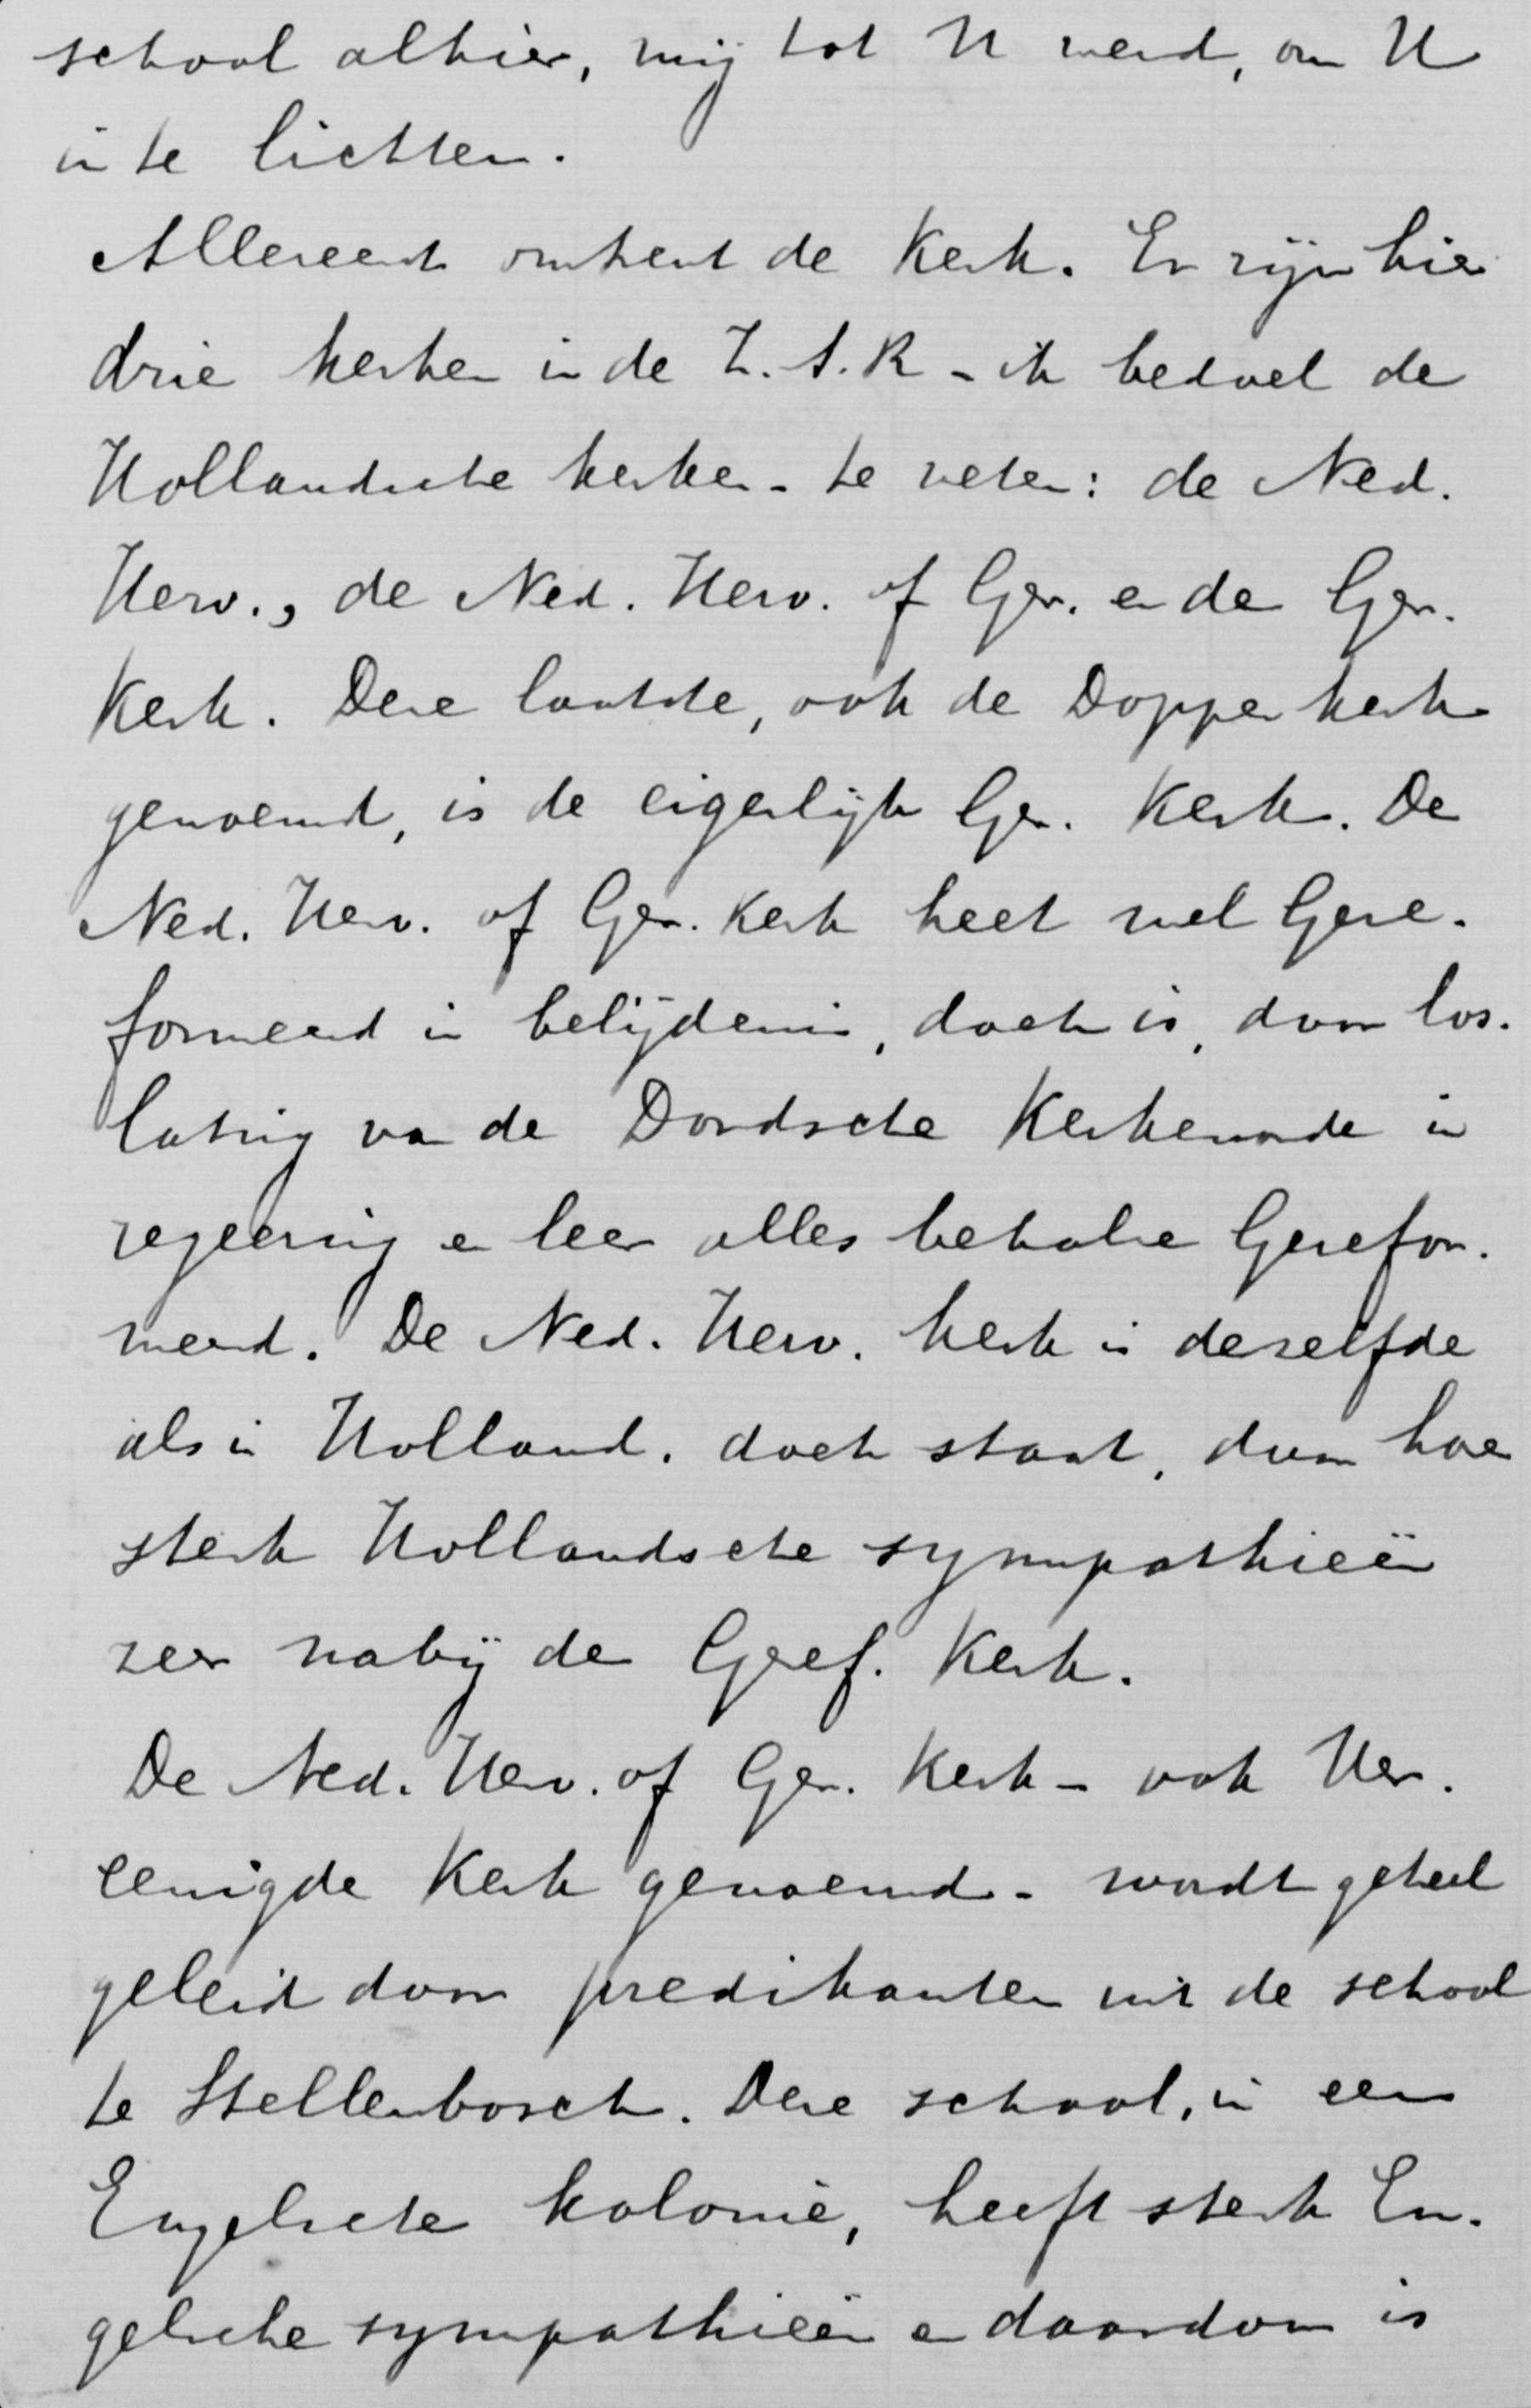 school alhier, mij tot U wend, om U
in te lichten.
Allereerst omtrent de Kerk. Er zijn hier
drie kerken in de Z.A.R - ik bedoel de
Hollandsche kerken - te weten: de Ned.
Herv., de Ned. Herv. of Ger. en de Ger.
Kerk. Deze laatste, ook de Dopper kerk
genoemd, is de eigenlijke Ger. Kerk. De
Ned. Herv. of Ger. Kerk heet wel Gere-
formeerd in belijdenis, doch is, door los-
lating van de Dordsche Kerkenorde in
regeering en leer alles behalve Gerefor-
meerd. De Ned. Herv. kerk is dezelfde
als in Holland, doch staat, door haar
sterk Hollandsche sympathieën
zeer nabij de Geref. Kerk.
De Ned. Herv. of Ger. Kerk - ook Ver-
eenigde Kerk genoemd - wordt geheel
geleid door predikanten uit de school
te Stellenbosch. Deze school, in een
Engelsche kolonie, heeft sterk En-
gelsche sympathieën en daardoor is